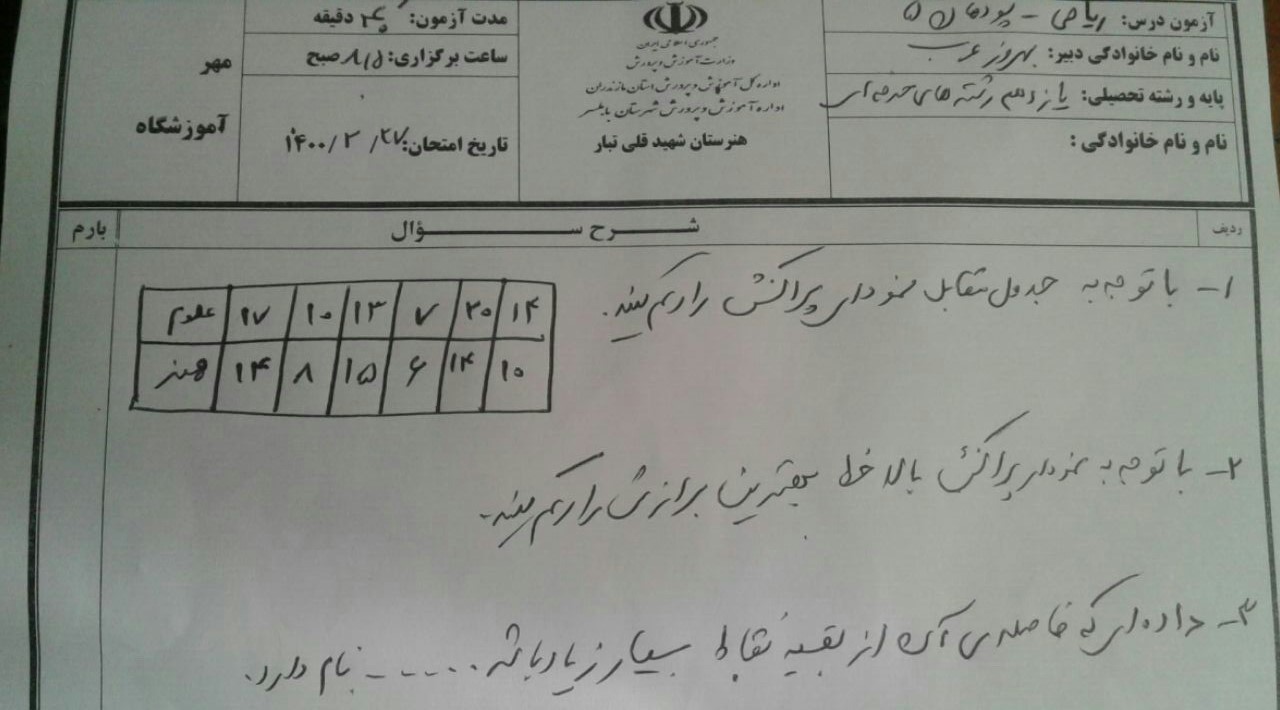 آزمون درس: ریاضی - پودمان ۵
نام و نام خانوادگی دبیر: بهروز عرب
پایه و رشته تحصیلی: یازدهم رشته های حرفه ای
نام و نام خانوادگی :
جمهوری اسلامی ایران
وزارت آموزش و پرورش
اداره کل آموزش و پرورش استان مازندران
اداره آموزش و پرورش شهرستان بابلسر
هنرستان شهید قلی تبار
مدت آزمون: دقیقه
ساعت برگزاری: ۸/۵ صبح
تاریخ امتحان: ۲۷/ ۲ /۱۴۰۰
مهر
آموزشگاه
ردیف شرح سؤال بارم
۱- با توجه به جدول مقابل نمودار پراکنش را رسم کنید.
علوم ۱۷ ۱۰ ۱۳ ۷ ۲۰ ۱۴
هنر ۱۴ ۸ ۱۵ ۶ ۱۴ ۱۰
۲- با توجه به نمودار پراکنش بالا خط بهترین برازش را رسم کنید.
۳- داده ای که فاصله ی آن از بقیه نقاط بسیار زیاد باشد ...... نام دارد.